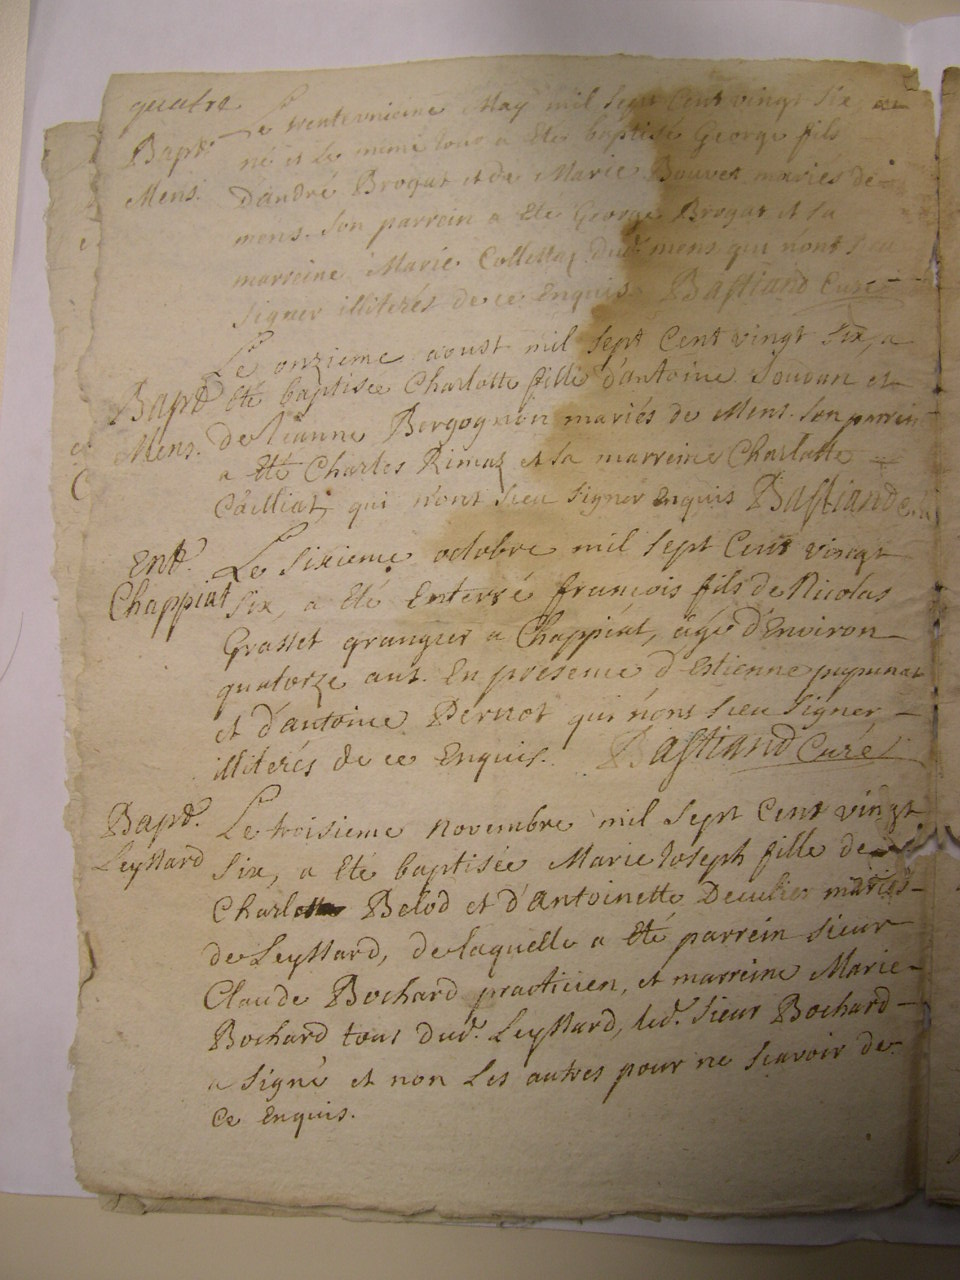 quatre
Bapt.
Mens.
Le trenteunieme May mil sept Cent vingt six, est
né et le meme Jour a Eté baptisé George fils
D'andré Brogat et de Marie Bouvet mariés de
mens. Son parrein a Eté George Brogat et sa
marreine Marie Collettaz dud. mens qui n'ont sceu
signer illiterés de ce Enquis. Bastiand Curé
Bapt.
Mens.
Le onzieme aoust mil sept Cent vingt six, a
été baptisée Charlotte fille d'antoine Jouvan et
de Jeanne Bergognon mariés de Mens. Son parrein
a Eté Charles Rimaz et sa marreine Charlotte
Cailliat, qui n'ont sceu signer Enquis Bastiand
Ent.
Chappiat
Le Sixieme octobre mil sept Cent vingt
Six, a Eté Enterré francois fils de Nicolas
Grasset granger a Chappiat, agé d'Environ
quatorze ans. En presence d'Estienne
et d'antoine Pernot qui n'ont sceu signer
illiterés de ce Enquis. Bastiand Curé
Bapt.
Leyssard
Le troisieme novembre mil Sept Cent vingt
Six, a Eté baptisée Marie Joseph fille de
Charl Belod et d'Antoinette mariés
de Leyssard, de laquelle a Eté parrein sieur
Claude Bochard practicien, et marreine Marie
Bochard tous dud. Leyssard, led. Sieur Bochard
a Signé et non Les autres pour ne scavoir de
Ce Enquis.